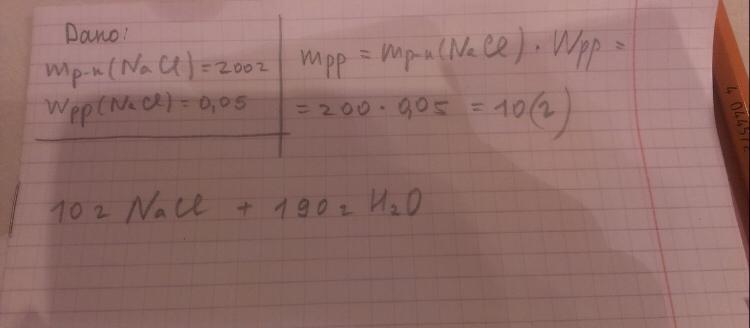 Дано:
mр-н(NaCl)=200г
Wрр(NaCl)=0,05
mрр = mр-н(NaCl) · Wрр =
= 200 · 0,05 = 10(г)
10г NaCl + 190г H₂O